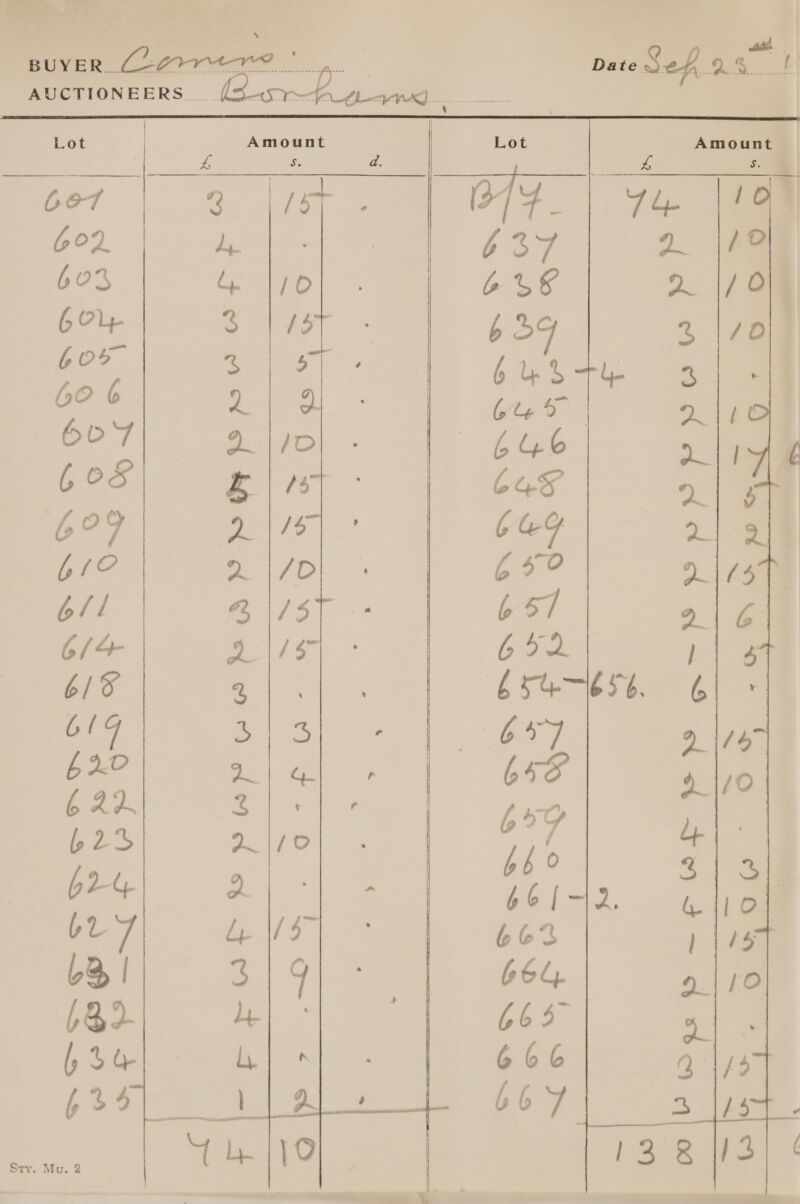 BUYER Date Sep 23
AUCTIONEERS Bonhams
Lot Amount Lot Amount
£ s. d. £ s.
601 3 15 - B/F 74 10
602 4 - - 637 2 10
603 4 10 - 638 2 10
604 3 15 - 639 3 10
605 3 5 - 643-4 3 -
606 2 2 - 645 2 10
607 2 10 - 646 2 17 6
608 5 15 - 648 2 5
609 2 15 - 649 2 2
610 2 10 - 650 2 15
611 3 15 - 651 2 6
614 2 15 - 652 1 5
618 3 - - 654-656. 6 -
619 3 3 - 657 2 15
620 2 4 - 658 2 10
622 3 - - 659 4 -
623 2 10 - 660 3 3
624 2 - - 661-2. 4 10
627 4 15 - 663 1 15
631 3 9 - 664 2 10
632 4 - - 665 2 -
634 4 - - 666 3 15
635 1 2 - 667 3 15 -
74 10 138 13 6
Sty. Mu. 2